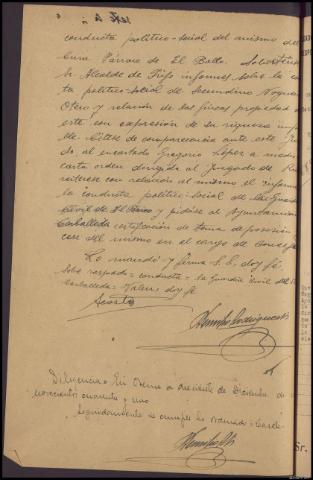 conducta político-social del mismo del
Cura Párroco de El Bollo. Solicítese
de Alcalde de Trijo informes sobre la con
ta político-social de Secundino Nogue
Otero y relación de las fincas propiedad
este con expresión de su riqueza imp
ble. Cítese de comparecencia ante este Juz
do, al encartado Gregorio López a medio
carta orden dirigida al Juzgado de
reiterese con relación al mismo el informe
la conducta político-social de la Guardia
civil de El Barco y pidase al Ayuntamien
Carballeda certificación de toma de posesión
cese del mismo en el cargo de concej
Lo mandó y firma S. S. doy fé
Sobre raspado = conducta = la Guardia Civil del
Carballeda = Valen doy fé
Acosta
Diligencia = En Orense a diecisiete de Diciembre de
novecientos cuarenta y uno
Seguidamente se cumple lo mandado =